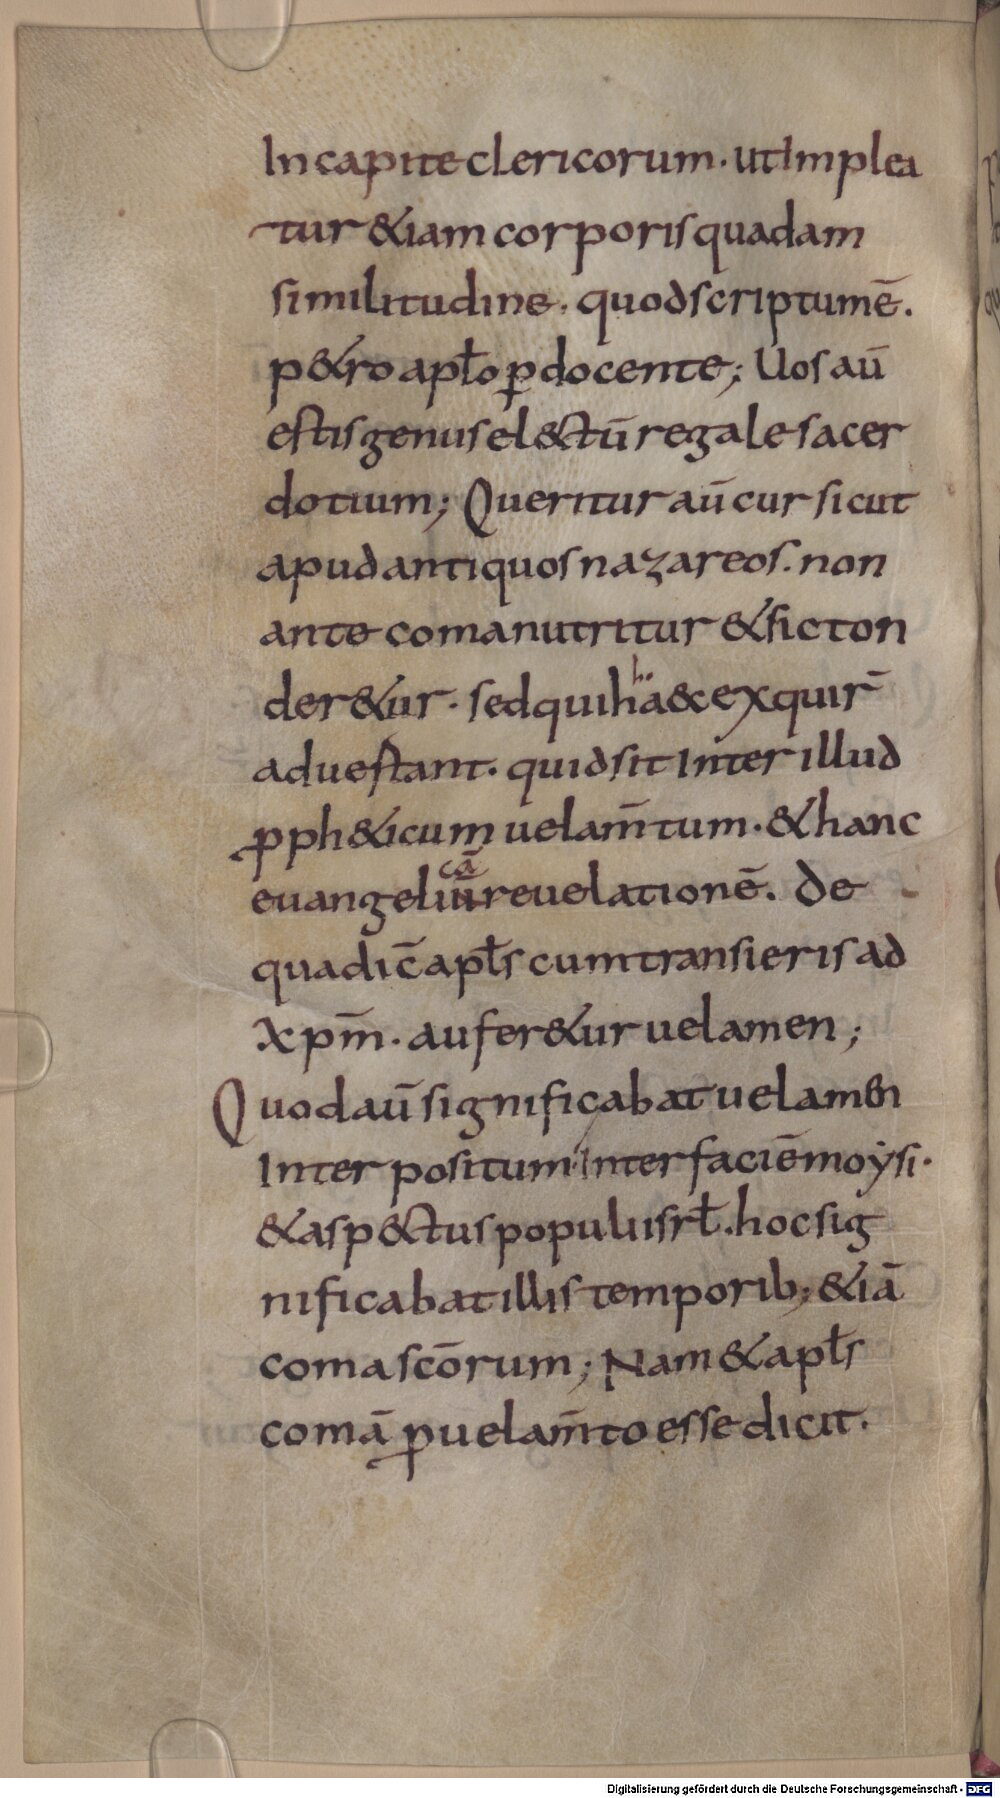 In capite clericorum · ut Implea
tur & iam corporis quadam
similitudine · quod scriptum ē .
p&ro aplo ꝑdocente ; Uos aū
estis genus el&ctū regale sacer
dotium ; Queritur aū cur sicut
apud antiquos nazareos . non
ante coma nutritur & sic ton
der&ur · sed qui hä & exquir̄
aduestant · quid sit Inter illud
ꝓph&icum uelam̄tum · & hanc
cā
euangeliū reuelationē . De
qua dic̄ apls cum transieris ad
xpm̄ · aufer&ur uelamen ;
Quod aū significabat uelamen
Inter positum Inter faciē moẏsi ·
& asp&ctus populi isrl . hoc sig
nificabat illis temporib; & iā
coma sc̄orum ; Nam & apls
comā ꝓ uelam̄to esse dicit .
Digitalisierung gefördert durch die Deutsche Forschungsgemeinschaft - DFG